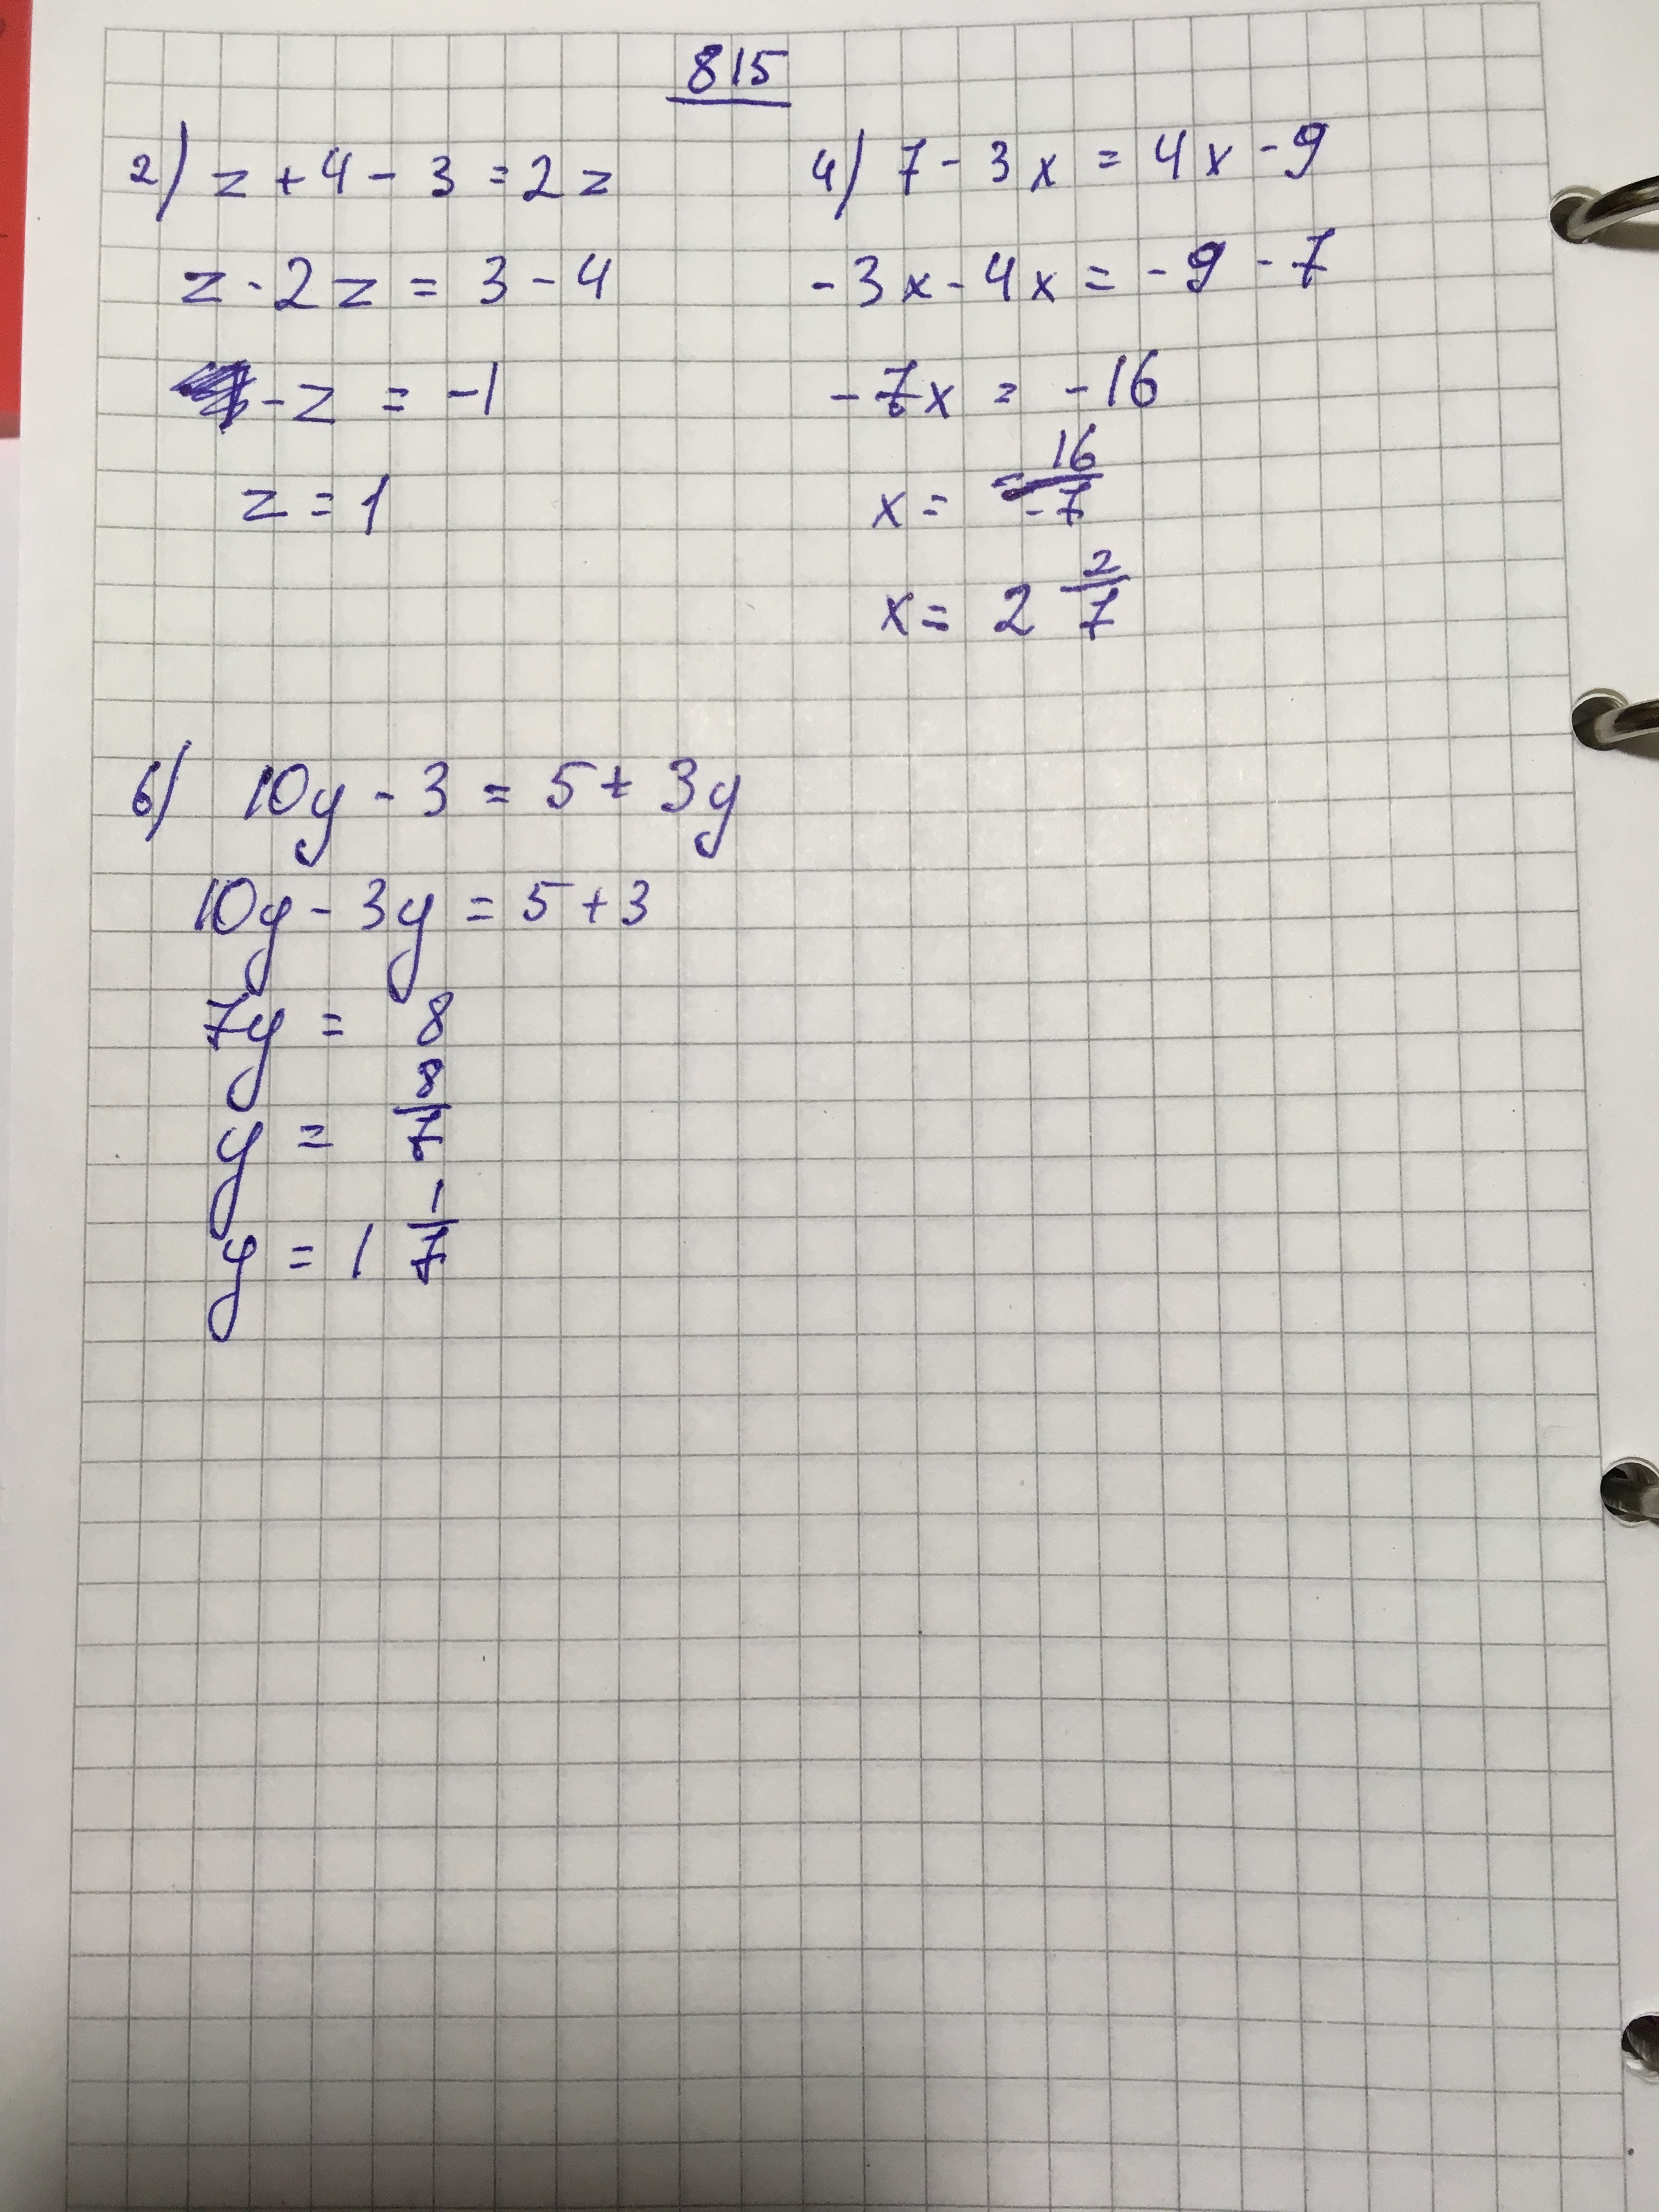 815
2) z + 4 - 3 = 2z
z - 2z = 3 - 4
-z = -1
z = 1
4) 7 - 3x = 4x - 9
-3x - 4x = -9 - 7
-7x = -16
x = -16/-7
x = 2 2/7
6) 10y - 3 = 5 + 3y
10y - 3y = 5 + 3
7y = 8
y = 8/7
y = 1 1/7